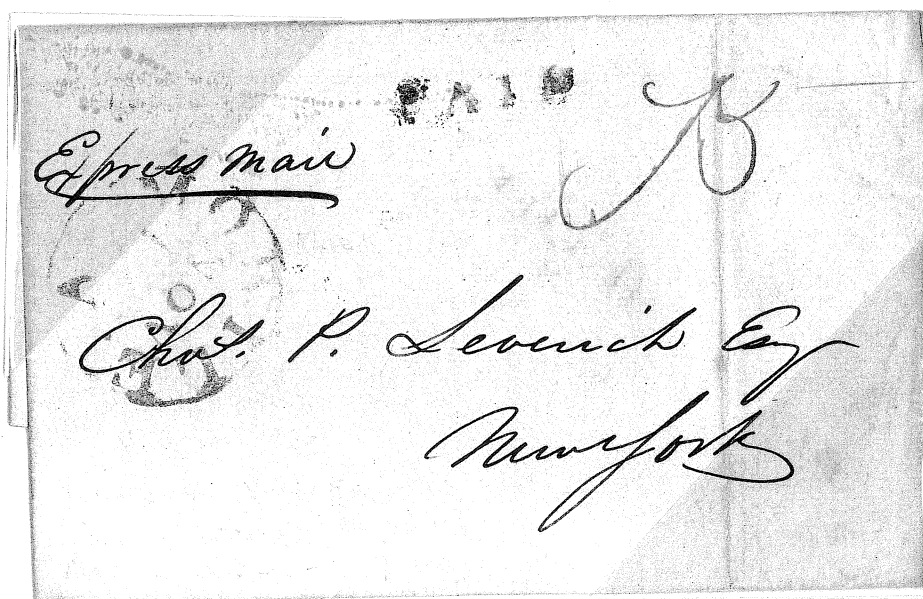 PAID
Express Mail
Chas. P. Leverich Esq
New York